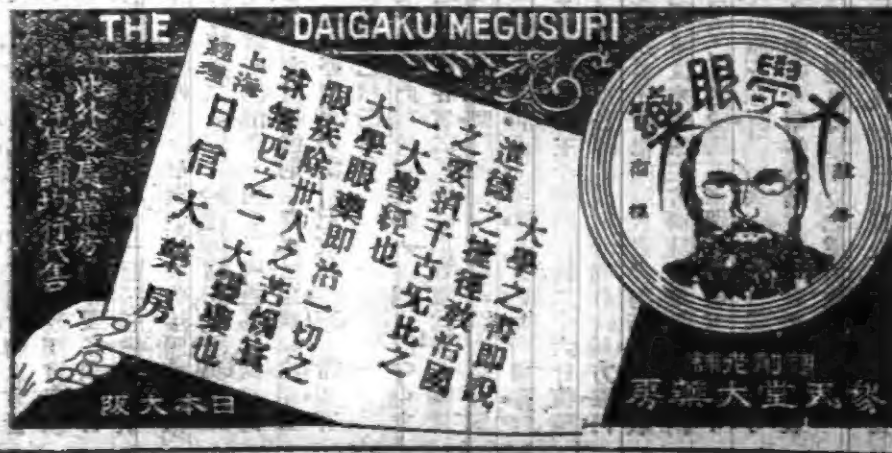 THE DAIGAKU MEGUSURI
大學眼藥
大學之書即說
進德之奎徑敎治國
之要領千古無比之
一大聖經也
大學眼藥即治一切之
眼疾除世人之苦獨
球無匹之一大靈也
上海
經理
日信大藥房
此外各處藥房
洋貨舖均有代售
日本大阪
參天堂大藥房